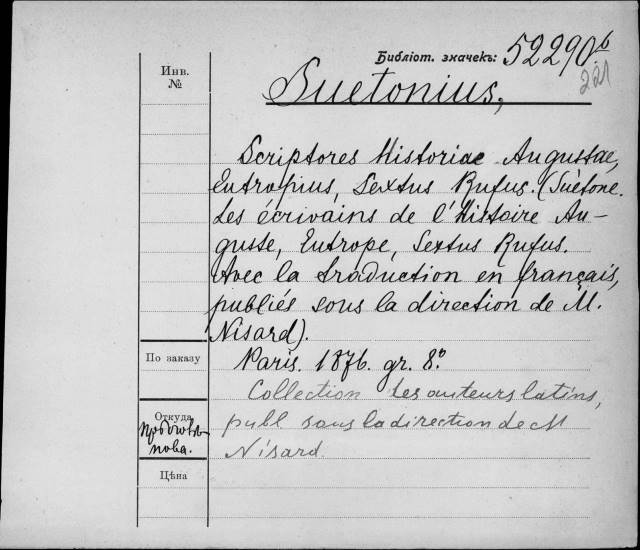 Библіот. значекъ: 52290б
221
Инв.
№
Suetonius,
Scriptores Historiae Augustae,
Eutropius, Sextus Rufus. (Suétone.
Les écrivains de l'Histoire Au-
guste, Eutrope, Sextus Rufus.
Avec la traduction en français,
publiés sous la direction de M.
Nisard).
По заказу
Paris. 1876. gr. 8º.
Collection des auteurs latins,
Откуда
publ. sous la direction de M
Nisard
Цѣна